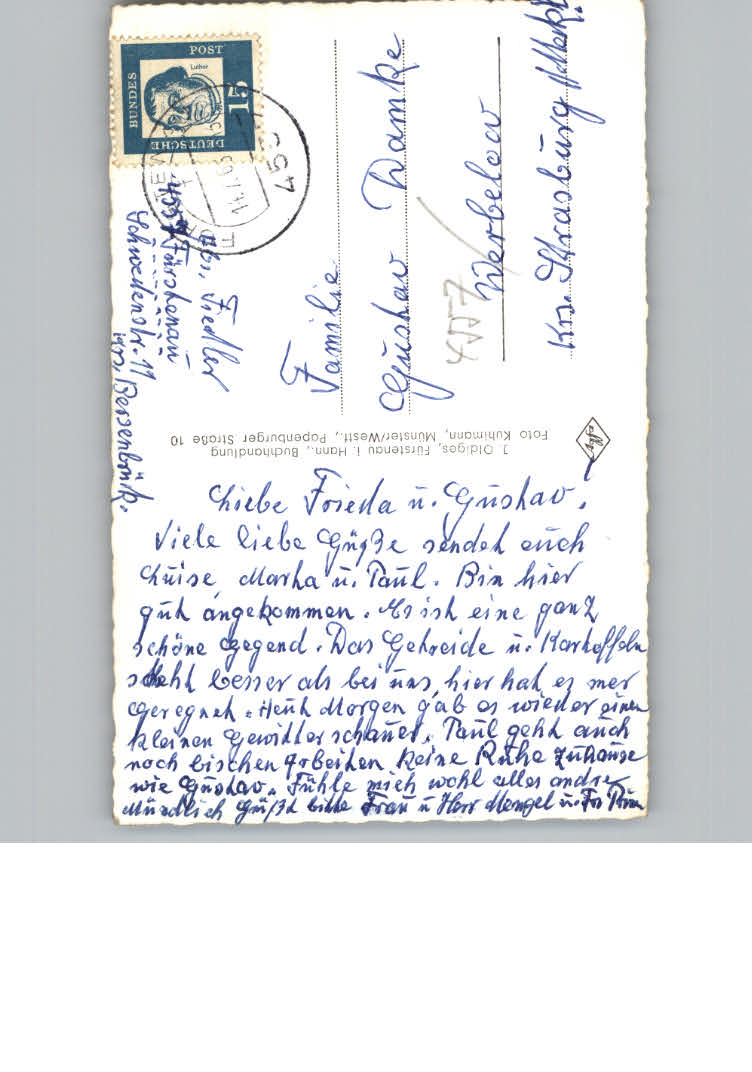 Liebe Frieda u. Gustav!
Viele liebe Grüße sendet euch
Luise, Marta u. Paul. Bin hier
gut angekommen. Es ist eine ganz
schöne Gegend. Das Getreide u. Kartoffeln
steht besser als bei uns, hier hat es mer
geregnet. Heut Morgen gab es wieder einen
kleinen Gewitterschauer. Paul geht auch
noch bischen arbeiten keine Ruhe zuhause
wie Gustav. Fühle mich wohl alles andre
Mündlich Grüßt bitte Frau u Herr Mengel u. Fr
J. Oldiges, Fürstenau i. Hann., Buchhandlung
Foto Kuhlmann, Münster/Westf., Papenburger Straße 10
Agfa
Abs. Fiedler
4557 Fürstenau
Schwedenstr. 11
Krs. Bersenbrück.
DEUTSCHE
BUNDES
POST
Luther
15
455
Familie
Gustav Damke
4557
Werbelow
Krs. Strasburg /Meckl